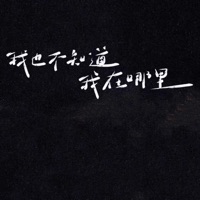 我也不知道
我在哪里